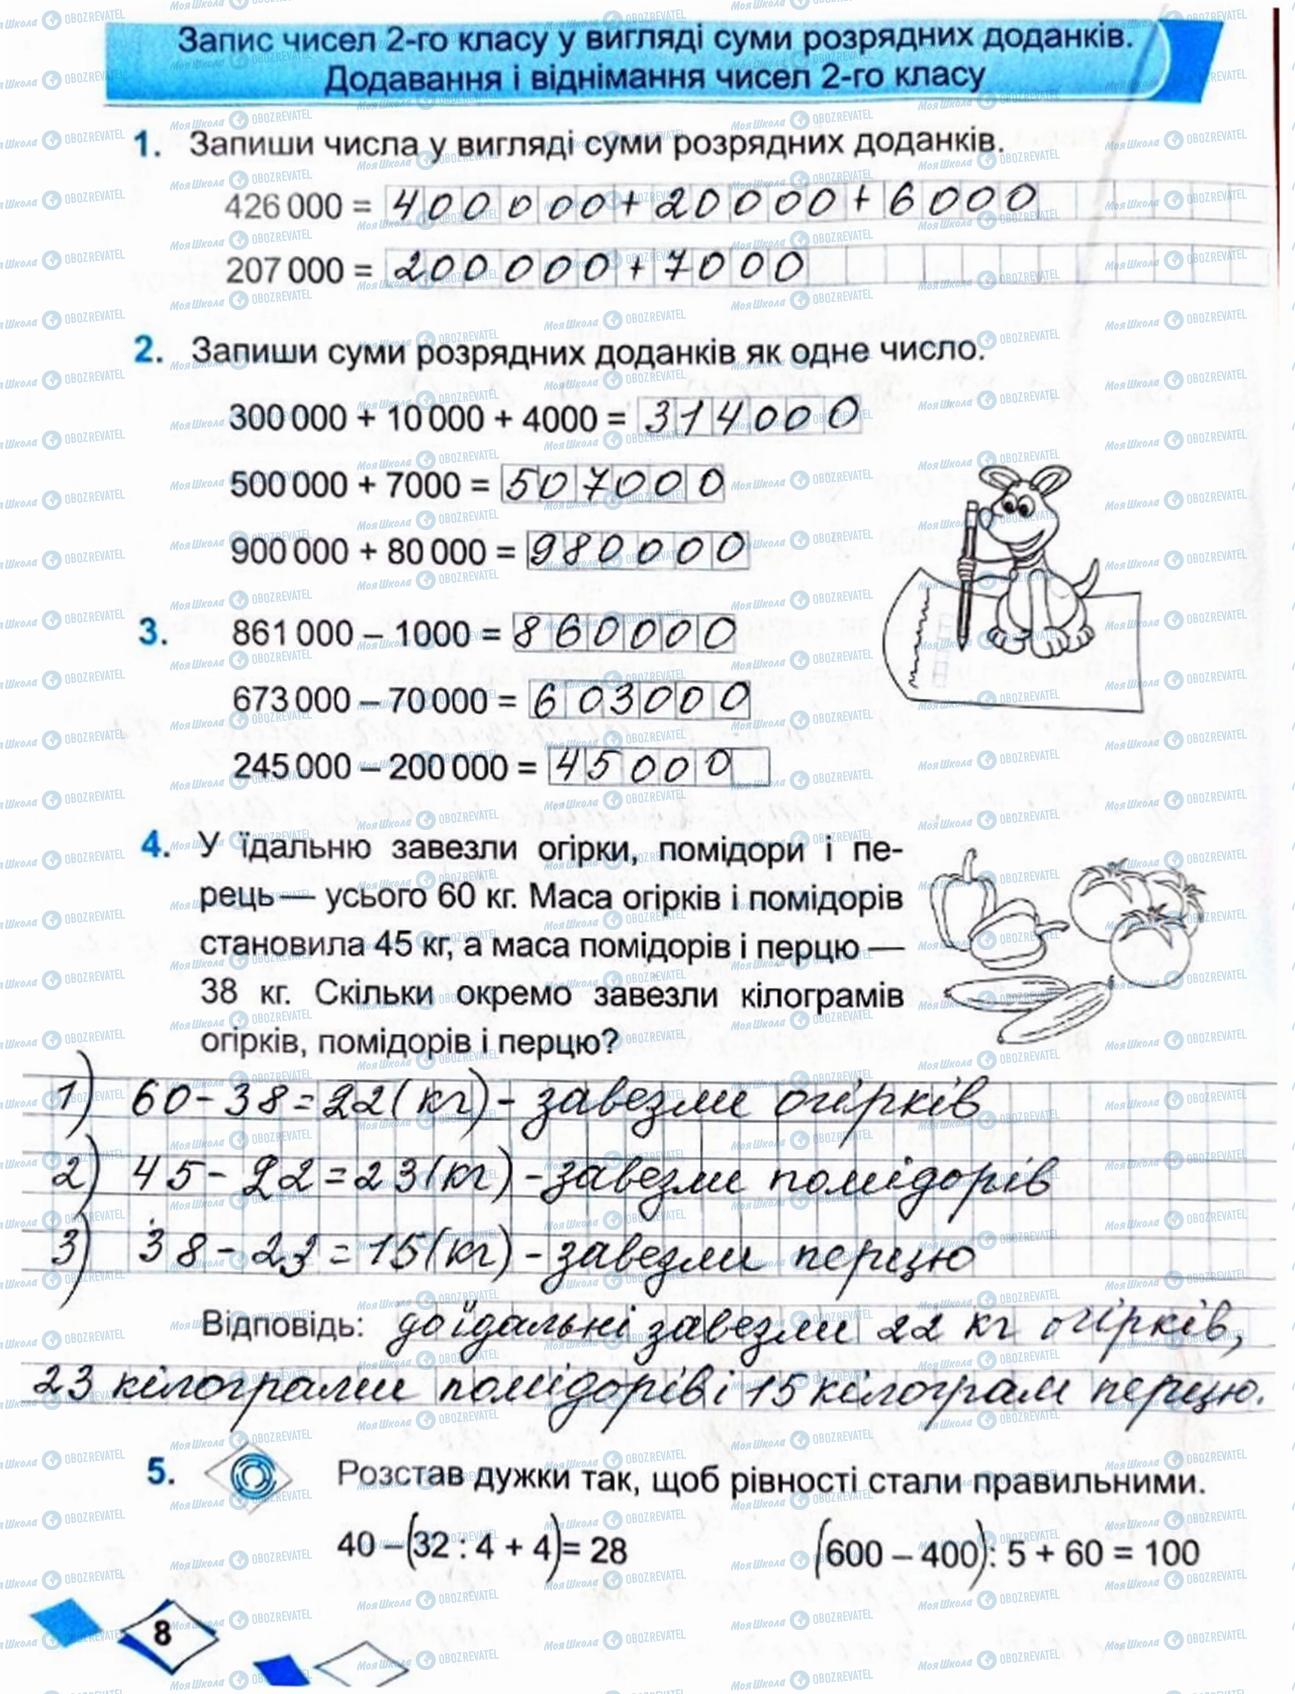 Запис чисел 2-го класу у вигляді суми розрядних доданків.
Додавання і віднімання чисел 2-го класу
1. Запиши числа у вигляді суми розрядних доданків.
426 000 = 400 000 + 20 000 + 6 000
207 000 = 200 000 + 7000
2. Запиши суми розрядних доданків як одне число.
300 000 + 10 000 + 4000 = 314000
500 000 + 7000 = 507000
900 000 + 80 000 = 980000
3. 861 000 – 1000 = 860000
673 000 – 70 000 = 603000
245 000 – 200 000 = 45000
4. У їдальню завезли огірки, помідори і пе-
рець — усього 60 кг. Маса огірків і помідорів
становила 45 кг, а маса помідорів і перцю —
38 кг. Скільки окремо завезли кілограмів
огірків, помідорів і перцю?
1) 60 - 38 = 22 (кг) - завезли огірків
2) 45 - 22 = 23 (кг) - завезли помідорів
3) 38 - 23 = 15 (кг) - завезли перцю
Відповідь: до їдальні завезли 22 кг огірків,
23 кілограми помідорів і 15 кілограм перцю.
5. Розстав дужки так, щоб рівності стали правильними.
40 – (32 : 4 + 4) = 28 (600 – 400) : 5 + 60 = 100
8
МояШкола OBOZREVATEL